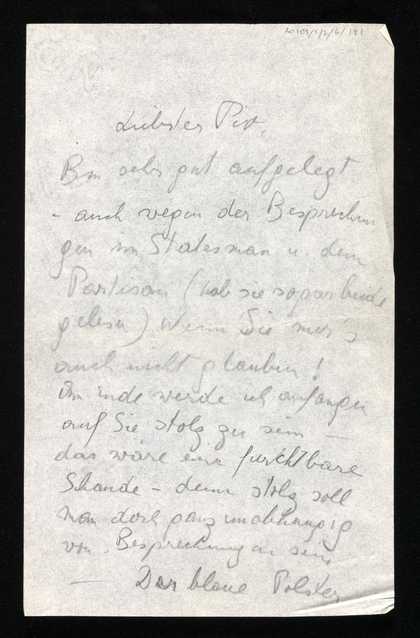 20109/1/2/6/121
Liebster Pit,
Bin sehr gut aufgelegt
- auch wegen der Besprechun
gen im Statesman u. dem
Partisan (hab sie sogar beide
gelesen) Wenn Sie mir's
auch nicht glauben!
Am Ende werde ich anfangen
auf Sie stolz zu sein —
das wäre eine furchtbare
Schande - denn stolz soll
man doch ganz unabhängig
von Besprechungen sein
— Der blaue Polster